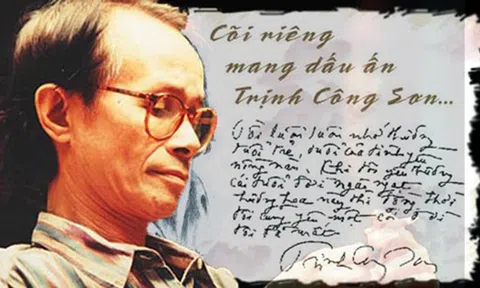 Cõi riêng
mang dấu ấn
Trịnh Công Sơn...
Tôi luôn luôn nhớ thương
tuổi trẻ, tuổi của tình yêu
nồng nàn. Khi tôi yêu thương
cái tuổi đời ngào ngạt
hương hoa này thì đồng thời
tôi cũng yêu một
tôi đã mất
Trịnh Công Sơn